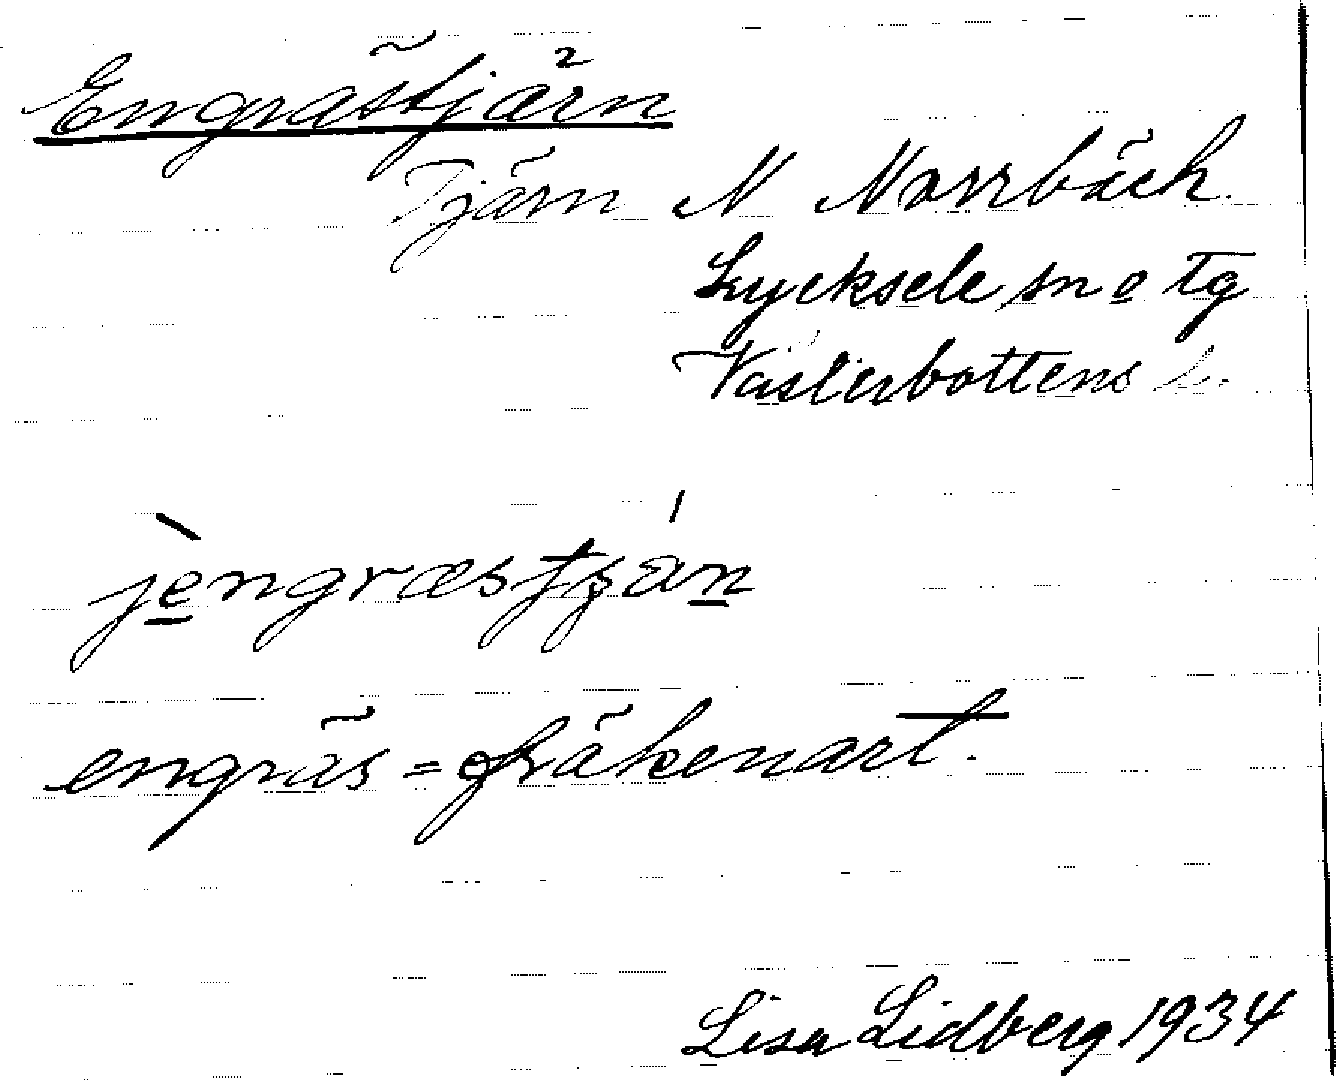 Engrästjärn
Tjärn N Norrbäck.
Lycksele sn o tg
Västerbottens l.
jèngræstján
engräs = fräkenart.
Lisa Lidberg 1934